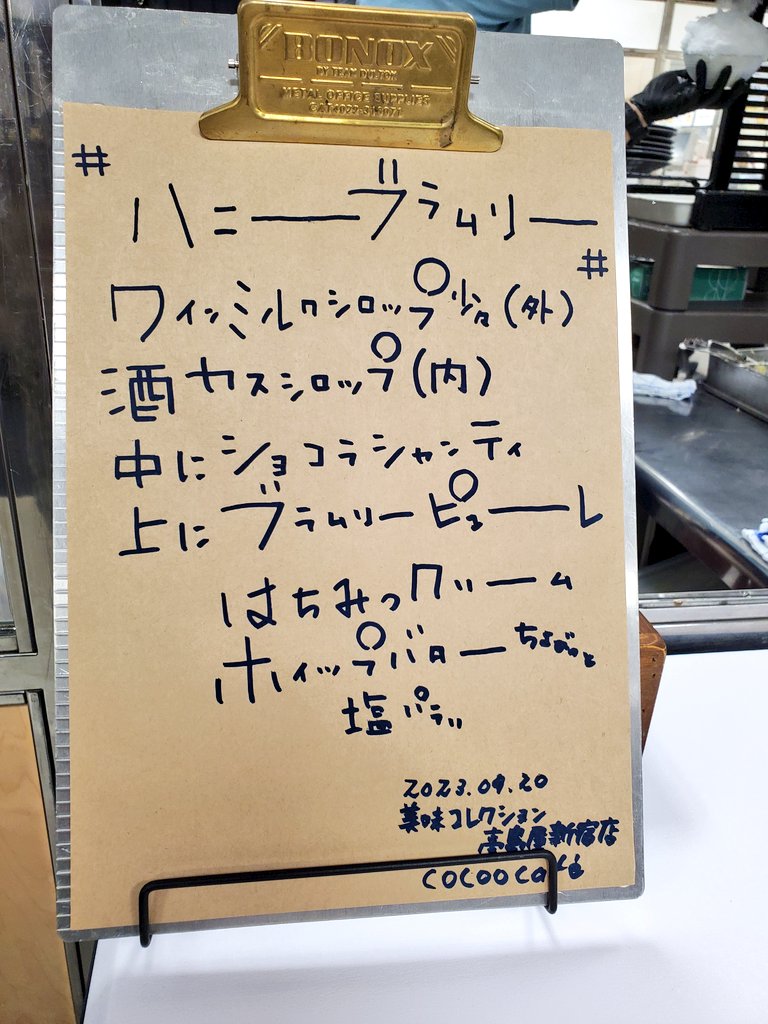 BONOX
BY TEAM DULTON
METAL OFFICE SUPPLIES
#
ハニーブラムリー
#
ワインミルクシロップ少々(外)
酒カスシロップ(内)
中にショコラシャンティ
上にブラムリーピューレ
はちみつクリーム
ホイップバターちょびっと
塩パラリ
2023.09.20
美味コレクション
高島屋新宿店
cocoo café